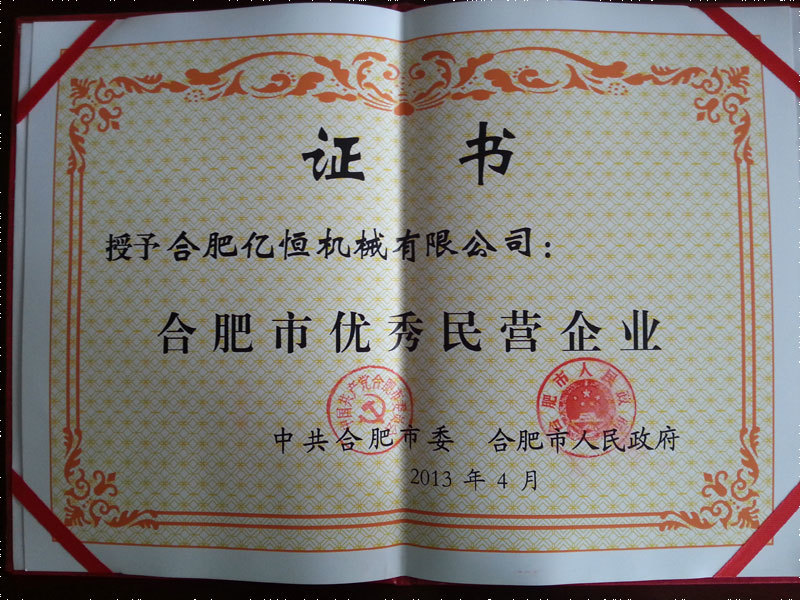 证书
授予合肥亿恒机械有限公司：
合肥市优秀民营企业
中国共产党合肥市委员会
合肥市人民政府
中共合肥市委 合肥市人民政府
2013年4月